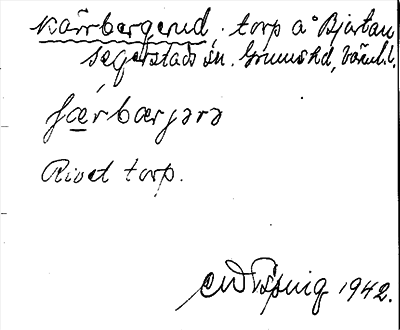 Kärrbergerud, torp å Bjärtan
Segerstads sn. Grums hd, Värml.
færbærjərə
Rivet torp.
1942.